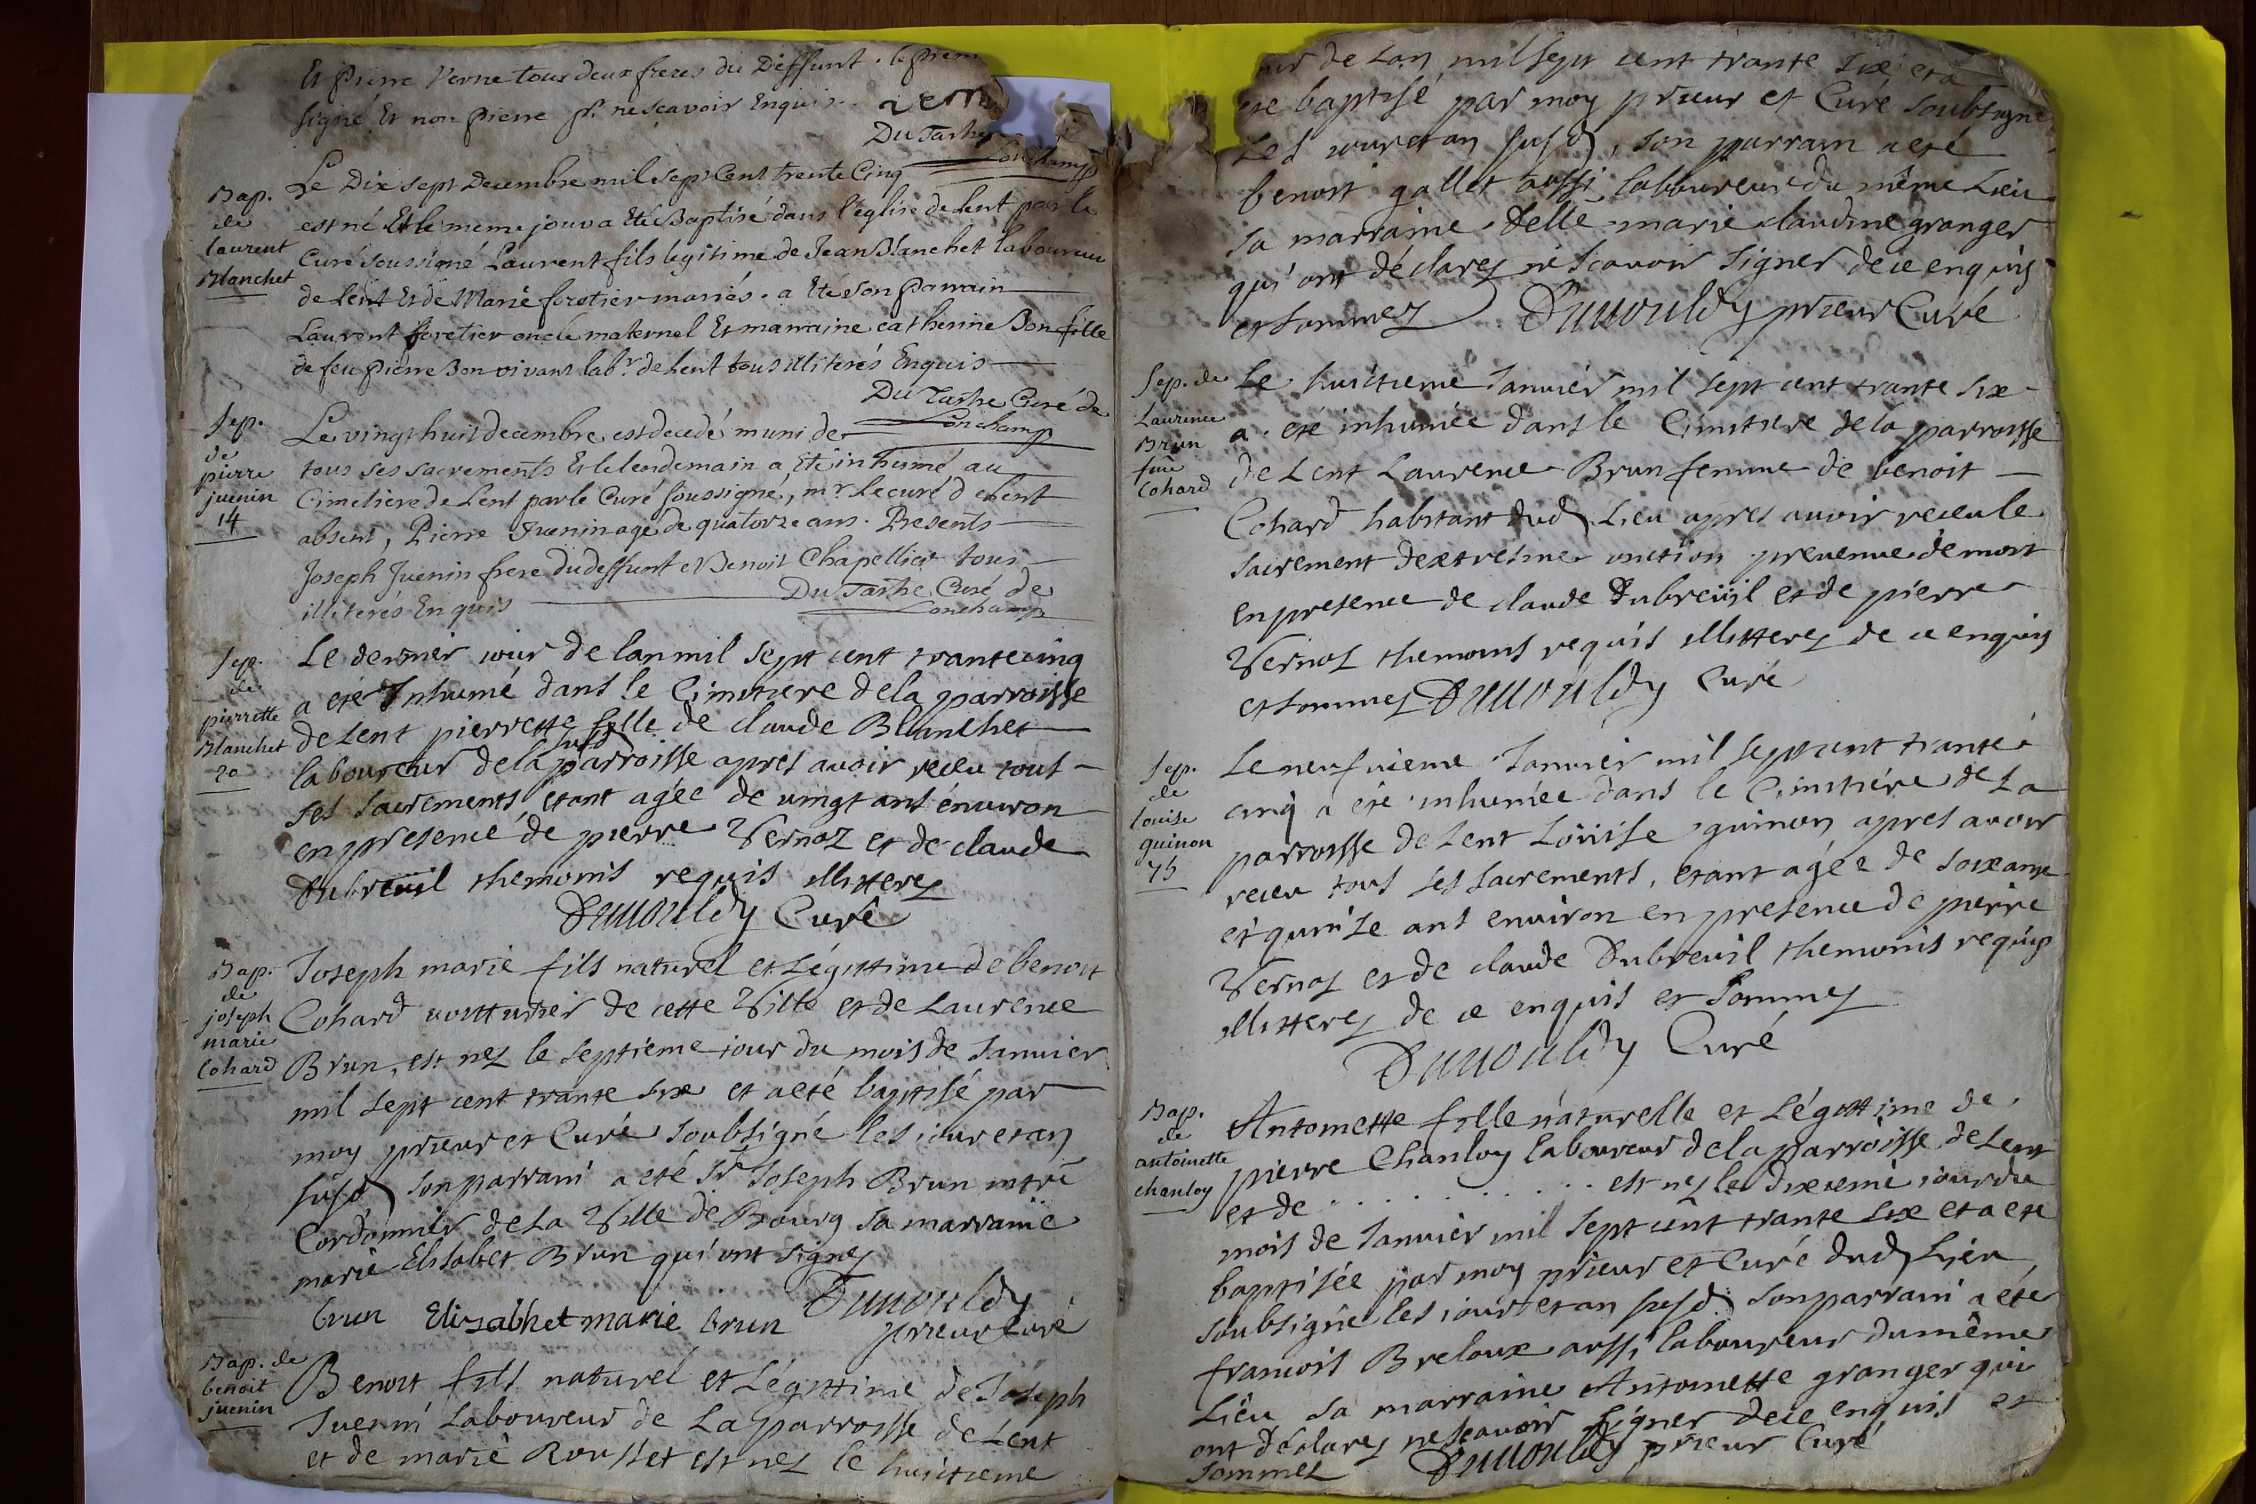 Et Pierre Verne tous deux freres du Deffunt. le prem
signé Et non pierre pr. ne scavoir Enquis. Verne
Du Tartre
Lonchamp
Bap.
de
laurent
Blanchet
Le Dix sept Decembre mil sept Cent trente Cinq
est né Et le meme jour a Eté Baptisé dans l'eglise de Lent par le
Curé soussigné Laurent fils legitime de Jean Blanchet laboureur
de Lent Et de Marie foretier mariés. a Eté son Parrain
Laurent foretier oncle maternel Et marraine catherine Bon fille
de feu Pierre Bon vivant labr. de Lent tous illiterés Enquis
Du Tartre Curé de
Lonchamp
Sep.
de
pierre
juenin
14
Le vingt huit decembre est decedé muni de
tous ses sacrements Et le lendemain a Eté inhumé au
Cimetiere de Lent par le Curé soussigné, mr. Le curé de Lent
absent, Pierre Juenin agé de quatorze ans. Presents
Joseph Juenin frere du deffunt et Benoit Chapellier tous
illiterés Enquis Du Tartre Curé de
Lonchamp
Sep.
de
pierrette
Blanchet
20
Le dernier iour de lan mil sept cent trante cinq
a eté Inhumé dans le Cimitiere de la parroisse
de Lent pierrette fille de claude Blanchet
laboureur de la susd parroisse apres avoir receu tous
ses sacrements etant agée de vingt ans environ
en presence de pierre Vernoz et de claude
Dubreuil themoins requis illitterez
Dunouldy Curé
Bap.
de
joseph
marie
Cohard
Joseph marie fils naturel et Légittime de benoit
Cohard voitturier de cette Ville et de Laurence
Brun, est nez le septieme iour du mois de Janvier
mil sept cent trante six et a eté baptisé par
moy prieur et Curé soubsigné les iour et an
susd son parrain a eté Sr Joseph Brun mtre
Cordonnier de La Ville de Bourg sa marraine
marie Elisabet Brun qui ont signez
brun Elizabhet marie brun Dunouldy
prieur curé
Bap. de
benoit
juenin
Benoit fils naturel et Légittime de Joseph
Juenin Laboureur de La parroisse de Lent
et de marie Rousset est nez le huictieme
iour de Lan mil sept cent trante six et a
eté baptisé par moy prieur et Curé soubsigné
Les iour et an susd, son parrain a eté
benoit gallet aussi laboureur du même Lieu
sa marraine Delle marie claudine granger
qui ont déclarez ne scavoir signer de ce enquis
et sommez Dunouldy prieur Curé
Sep. de
Laurence
Brun
fme
Cohard
Le huictieme Janvier mil sept cent trante six
a eté inhumée dans le Cimitiere de la parroisse
de Lent Laurence Brun femme de benoit
Cohard habitant dud Lieu apres avoir receu le
sacrement dextresme onction prevenue de mort
en presence de claude Dubreüil et de pierre
Vernoz themoins requis illitterez de ce enquis
et sommez Dunouldy Curé
Sep.
de
louise
guinon
75
Le neufvieme Janvier mil sept cent trante
cinq a eté inhumée dans le Cimitiére de La
parroisse de Lent Loüise guinon apres avoir
receu tous ses sacrements, etant agée de soixante
et quinse ans environ en presence de pierre
Vernoz et de claude Dubreuil themoins requis
illitterez de ce enquis et sommez
Dunouldy Curé
Bap.
de
antoinette
chanloy
Antoinette fille naturelle et Légittime de
pierre Chanloy laboureur de la parroisse de Lent
et de . . . . . . . . . . . est nez le dixieme iour du
mois de Janvier mil sept cent trante six et a eté
baptisée par moy prieur et Curé dud Lieu
soubsigné les iour et an susd son parrain a eté
francois Breloux aussi laboureur du même
Lieu sa marraine Antoinette granger qui
ont déclarez ne scavoir signer de ce enquis et
sommez Dunouldy prieur Curé